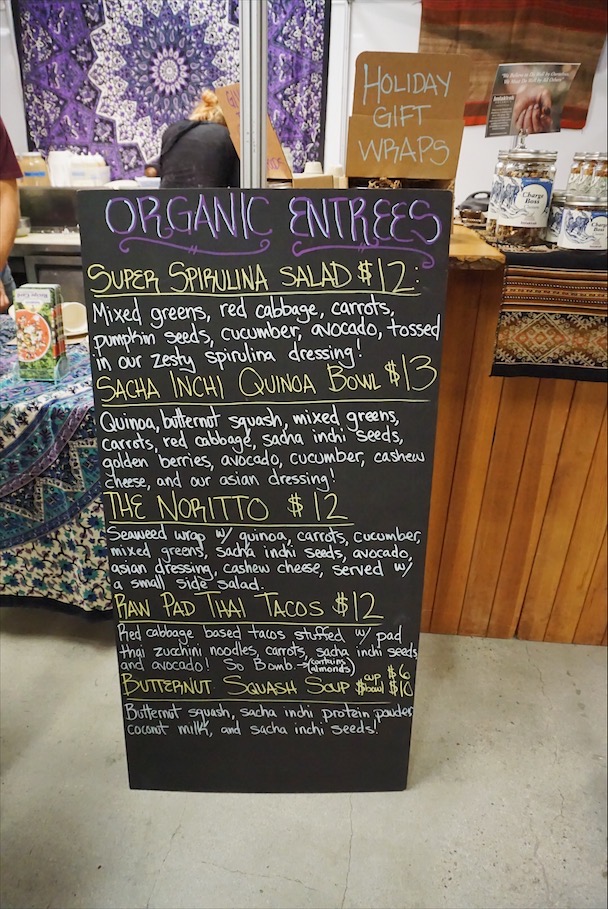 HOLIDAY
GIFT
WRAPS
Charge
Boss
ORGANIC ENTREES
SUPER SPIRULINA SALAD $12:
Mixed greens, red cabbage, carrots,
pumpkin seeds, cucumber, avocado, tossed
in our zesty spirulina dressing!
SACHA INCHI QUINOA BOWL $13
Quinoa, butternut squash, mixed greens,
carrots, red cabbage, sacha inchi seeds,
golden berries, avocado, cucumber, cashew
cheese, and our asian dressing!
THE NORITTO $12
Seaweed wrap w/ quinoa, carrots, cucumber,
mixed greens, sacha inchi seeds, avocado,
asian dressing, cashew cheese, served w/
a small side salad.
RAW PAD THAI TACOS $12
Red cabbage based tacos stuffed w/ pad
thai zucchini noodles, carrots, sacha inchi seeds
and avocado! So Bomb. → (contains almonds)
BUTTERNUT SQUASH SOUP cup $6 bowl $10
Butternut squash, sacha inchi protein powder
coconut milk, and sacha inchi seeds!